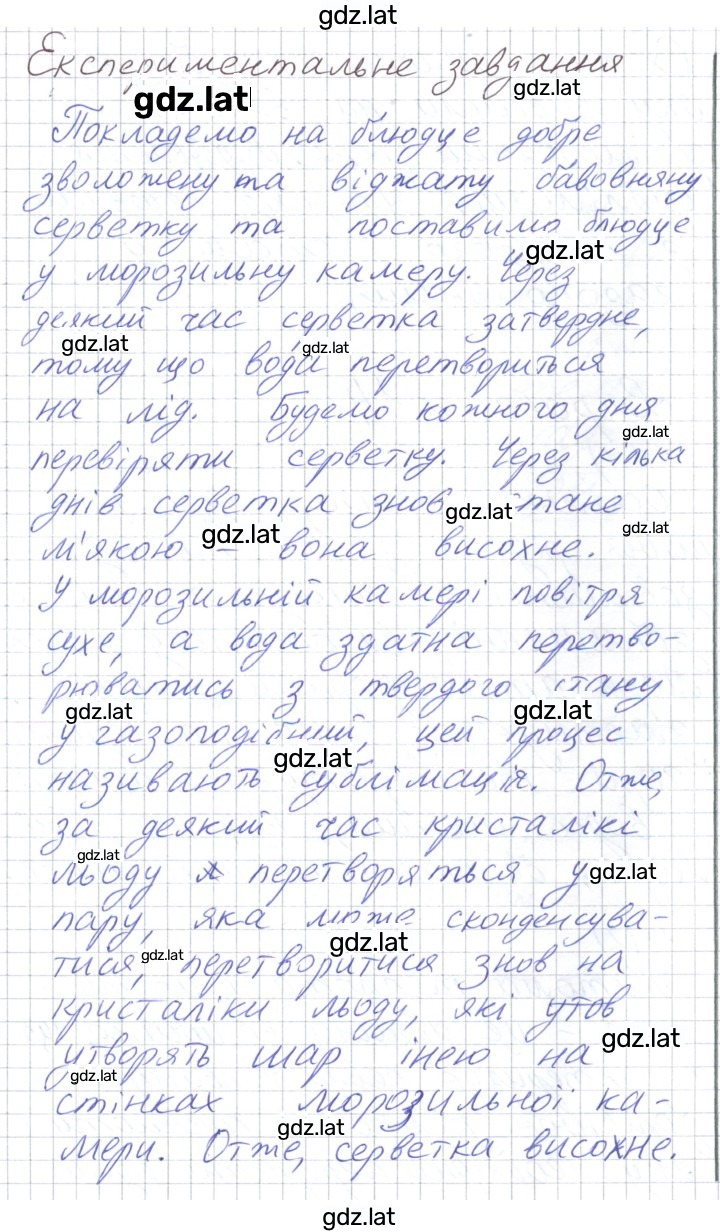 gdz.lat
Експериментальне завдання
gdz.lat
gdz.lat
Покладемо на блюдце добре
зволожену та віджату бавовняну
серветку та поставимо блюдце
gdz.lat
у морозильну камеру. Через
деякий час серветка затвердне,
gdz.lat
gdz.lat
тому що вода перетвориться
на лід. Будемо кожного дня
gdz.lat
перевіряти серветку. Через кілька
днів серветка знов стане
gdz.lat
gdz.lat
gdz.lat
м'якою – вона висохне.
У морозильній камері повітря
сухе, а вода здатна перетво-
рюватись з твердого стану
gdz.lat
gdz.lat
у газоподібний, цей процес
gdz.lat
називають сублімація. Отже,
за деякий час кристалікі
gdz.lat
льоду перетворяться у
gdz.lat
пару, яка може сконденсува-
gdz.lat
gdz.lat
тися, перетворитися знов на
кристаліки льоду, які утов
gdz.lat
утворять шар інею на
gdz.lat
стінках морозильної ка-
gdz.lat
мери. Отже, серветка висохне.
gdz.lat